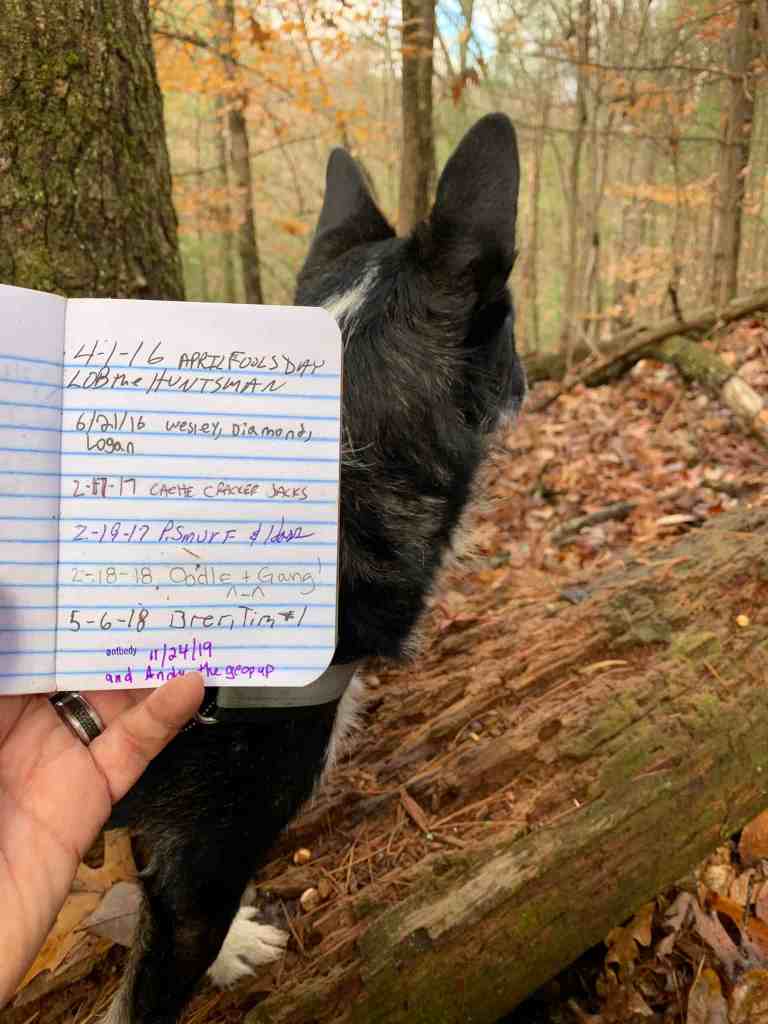 4-1-16 APRIL FOOLS DAY
LOB the HUNTSMAN
6/21/16 Wesley, Diamond,
Logan
2-17-17 CACHE CRACKER JACKS
2-19-17 P.Smurf &
2-18-18, Oodle + Gang!
^-^
5-6-18 Brer, Tim #1
antbedy 11/24/19
and Andy the geopup